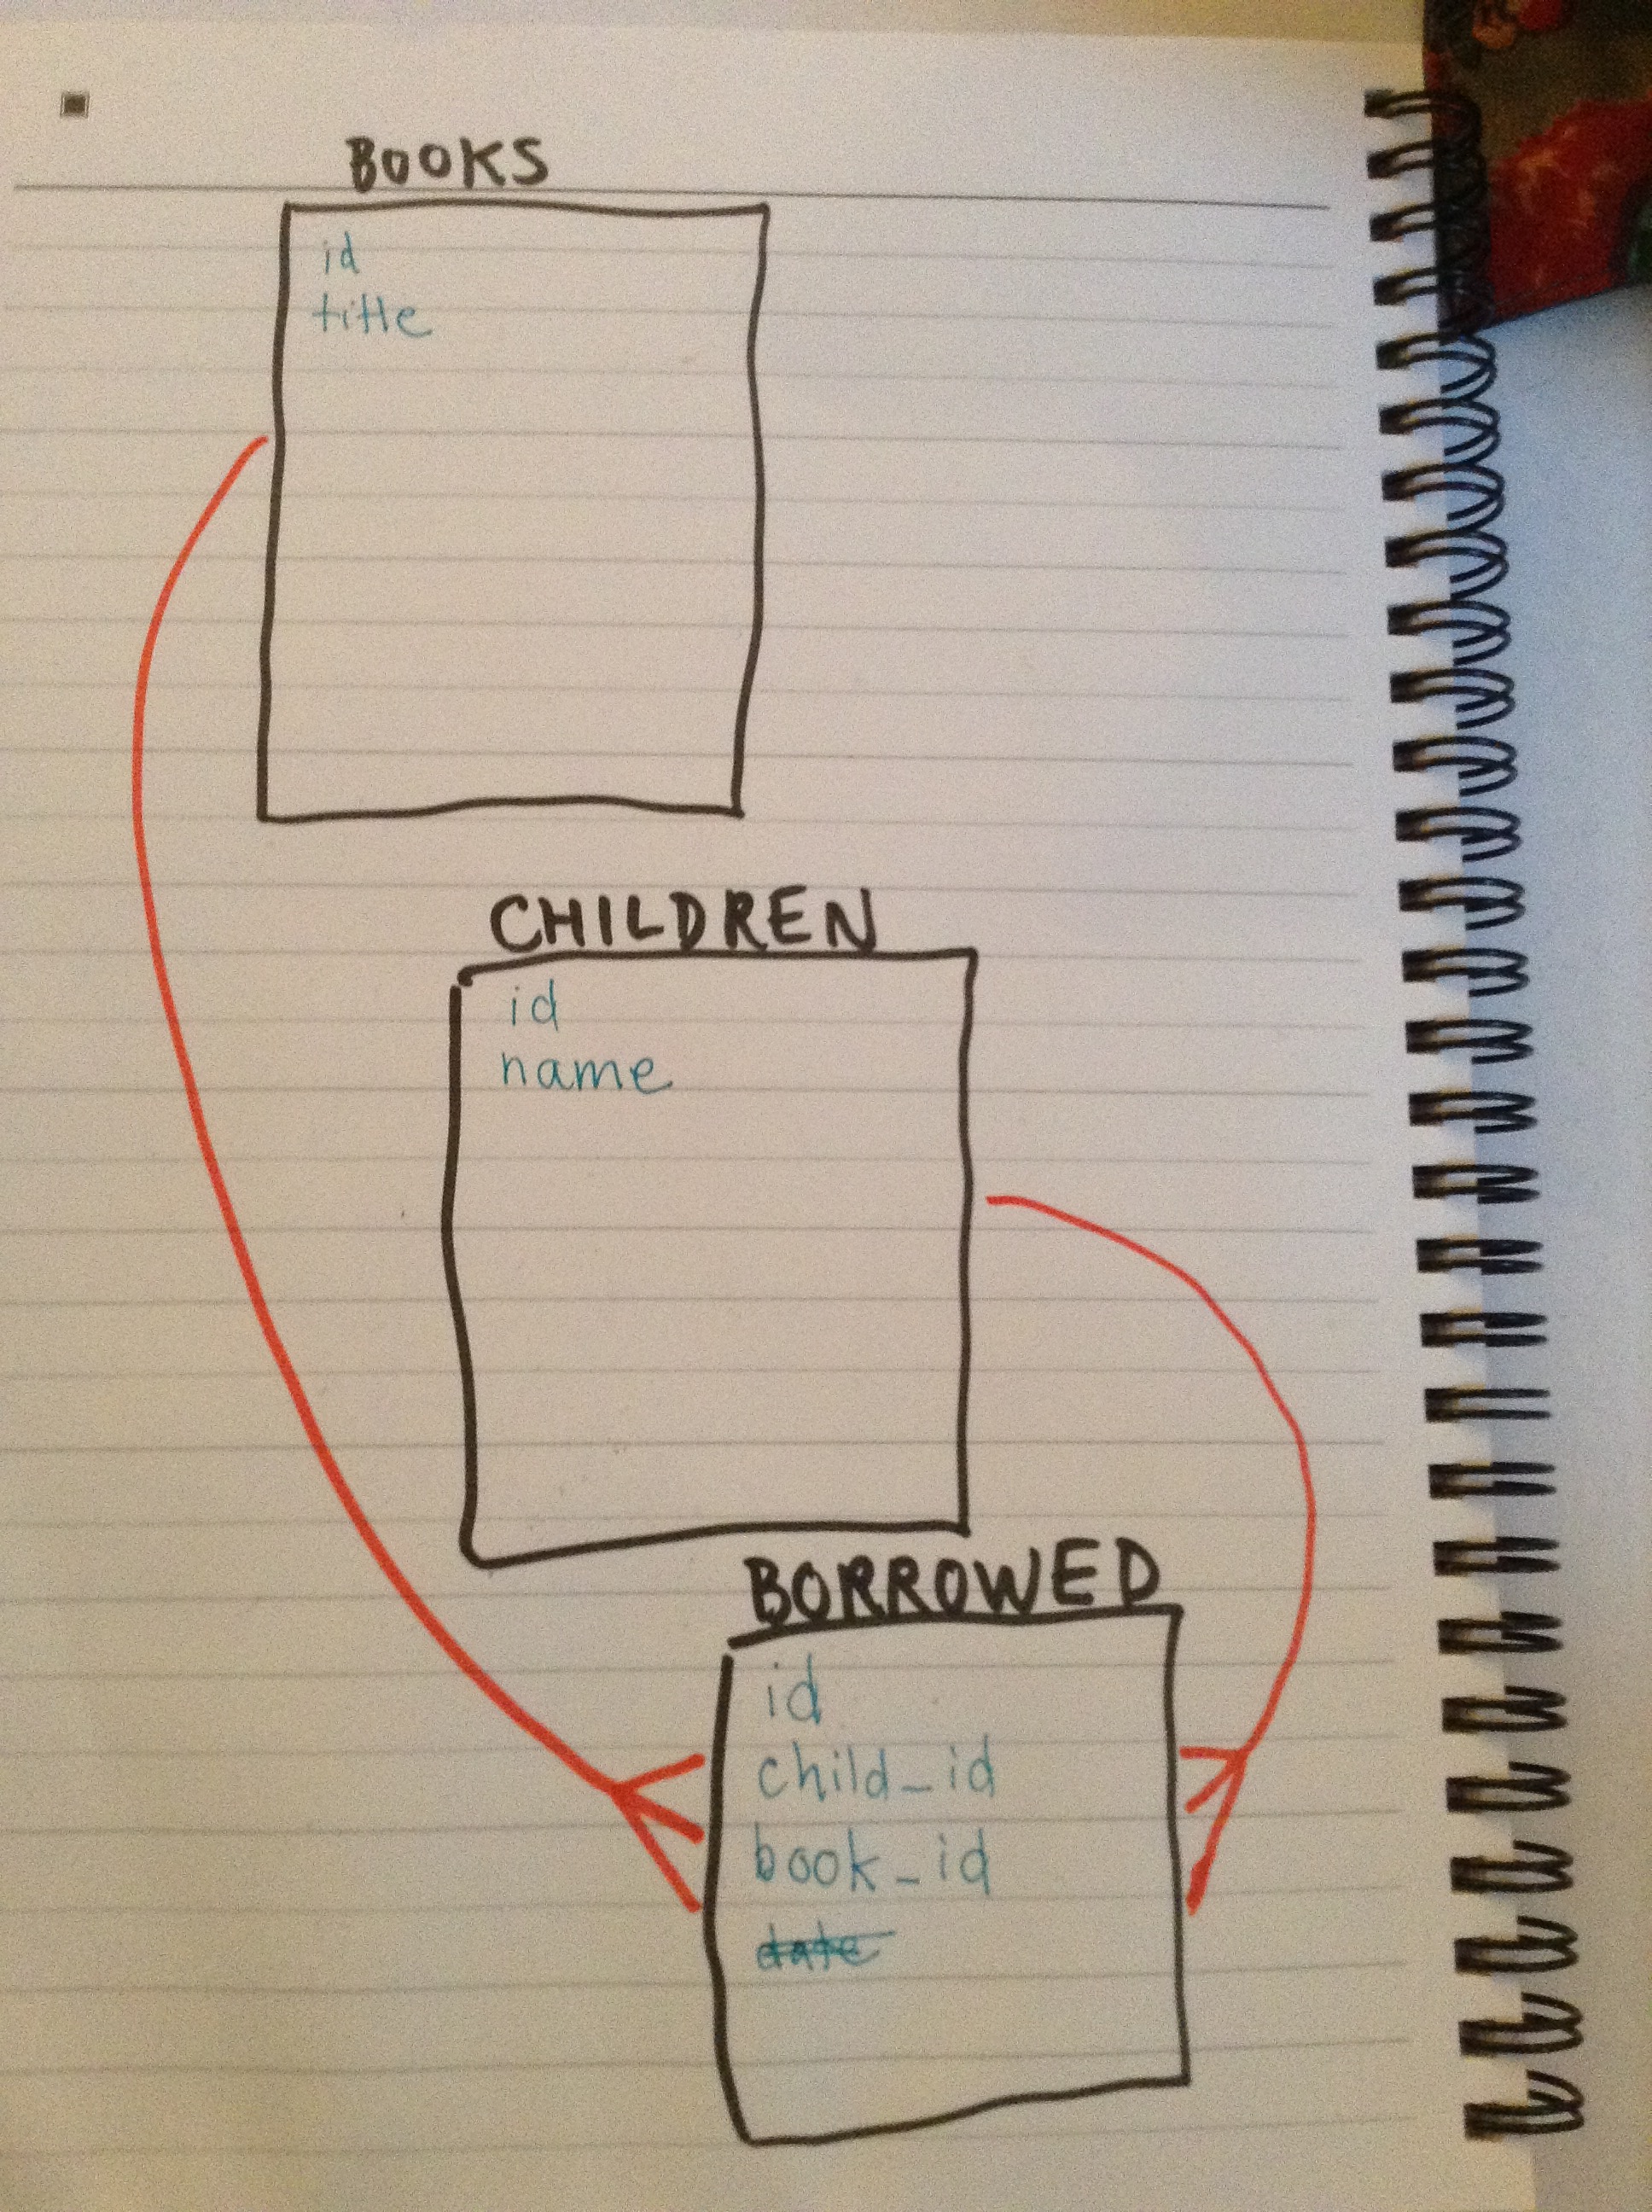 BOOKS
id
title
CHILDREN
id
name
BORROWED
id
child_id
book_id
date